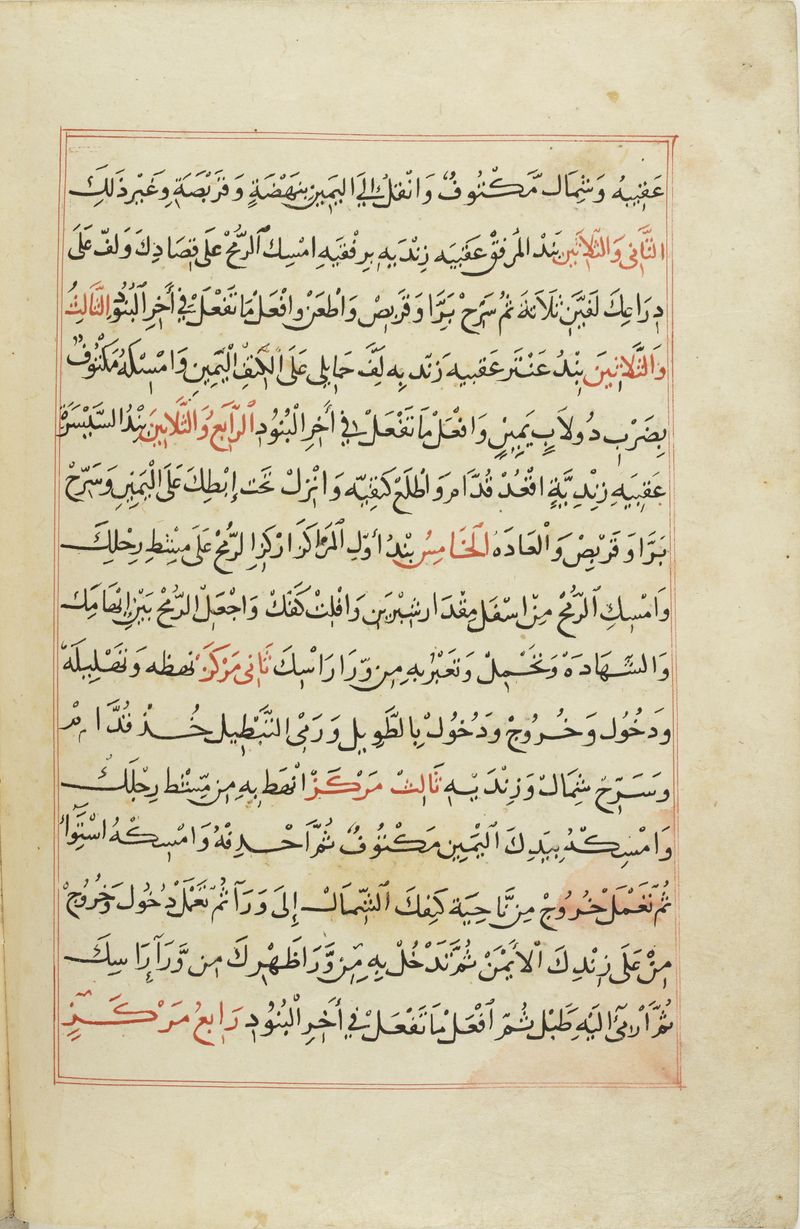 عَقِبِيهُ وَشِمَال مَّكْتُوفُ وَانْفتَلْ اِلَى اليَمِينِ بِنَهْضَةٍ وَقَرْبَصَةٍ وَغَيْرِ ذَلِكَ
الثَّانِى وَالثَّلَاثِينَ بَنْدُ المُرفَقْ عَقِبيَه زِنْدَيه بِرفْقِيَه امْسِكْ الرُّمْحْ عَلَى قِصَادِكَ وَلفّ عَلَى
دِرَاعِكَ لَفَّيْنِ ثَلَاثَة ثُمُ سَرِّحْ بَرَّا وَقَرْبِصْ وَاطْعَنْ وافْعَلْ مَا تَفْعَلْ فِي أَخِرِ الْبُنُودِ الثَّالِثُ
وَالثَّلَاثِينَ بنْدُ عَنْتَر عَقِبيه زَنْد بِه لَفَّ حَمَايلى عَلَى الكَتِفْ الْيَمِينِ وَامْسْكهُ مَكْتُوفْ
بِضَرْبِ دُولَابِ يَمِينٍ وَافْعَلْ مَا تَفْعَلْ فِي أَخِرِ الْبُنُودِ الرَّابَعُ وَالثَّلَاثِينَ بنْدُ السَّيْسَرَّةْ
عَقِبَيهِ زِنْدِيَّةٍ اقْعُدْ قُدَّام وَاطْلَعْ كَتِفِيَّه وَانْزِلْ تَحْت إِبْطِكَ عَلَى الْيَمِينِ وَسَرِّحْ
بَرَّا وَقَرْبِصْ وَالْعَادَه الخَامِسُ بنْدُ أَوَّلِ المَرَاكزْ ارْكزِ الرُّمْحْ عَلَى مِشْطِ رِجْلِكَ
وَامْسِكِ الرُّمْحْ مِنْ اسْفَل مِقْدَار شِبْرَين وَافْلِتْ كَفّكْ وَاجْعَلْ الرُّمْحْ بَيْنِ اِبْهَامِكَ
وَالشَّهَادَهْ وَتَحْمِلْ وَتَعَبْرُ بِهِ مِن وّرَا رَاسِكَ ثَانِى مَرْكَزْ نهطه وَتَقْلِيبَلَهْ
وَدخُول وَخُرُوجْ وَدُخُولْ بِالطَّوِيل وَرَمْى التَّبْطِيل خُذْ قُدَّامْ
وسَرِّحْ شِمَالْ وَزِنْدَيَه ثَالِثْ مَرْكَزْ انْهَطْ بِهِ مِن مِّشْط رِجْلَكْ
وَامْسِكْهُ بِيَدِكَ اليَمِين مَكْتُوفْ ثُمَّ احْدِفْهُ وَامْسِكْهُ اسْتِوَا
ثُمَّ تَعْمَلْ خُرُوجْ مِن نَّاحِيَة كَتِفِكَ الشِّمَالْ إِلَى وَرَا ثُمَّ تَعْمَلْ دُخُولْ وَخُرُوجْ
مِنْ عَلَى زِنْدِكَ الْأَيْمَنْ ثُمَّ تَدْخُلْ بِهِ مِن وَّرَا ظَهْرِكَ مِن وَّرَآ رَاسِكَ
ثُمَّ اَرْمِى اليَهِ طَبْلْ ثُمَّ افْعَلْ مَا تَفْعَلْ فِي أَخِرِ الْبُنُودِ رَابِعُ مَرْكَزٍ